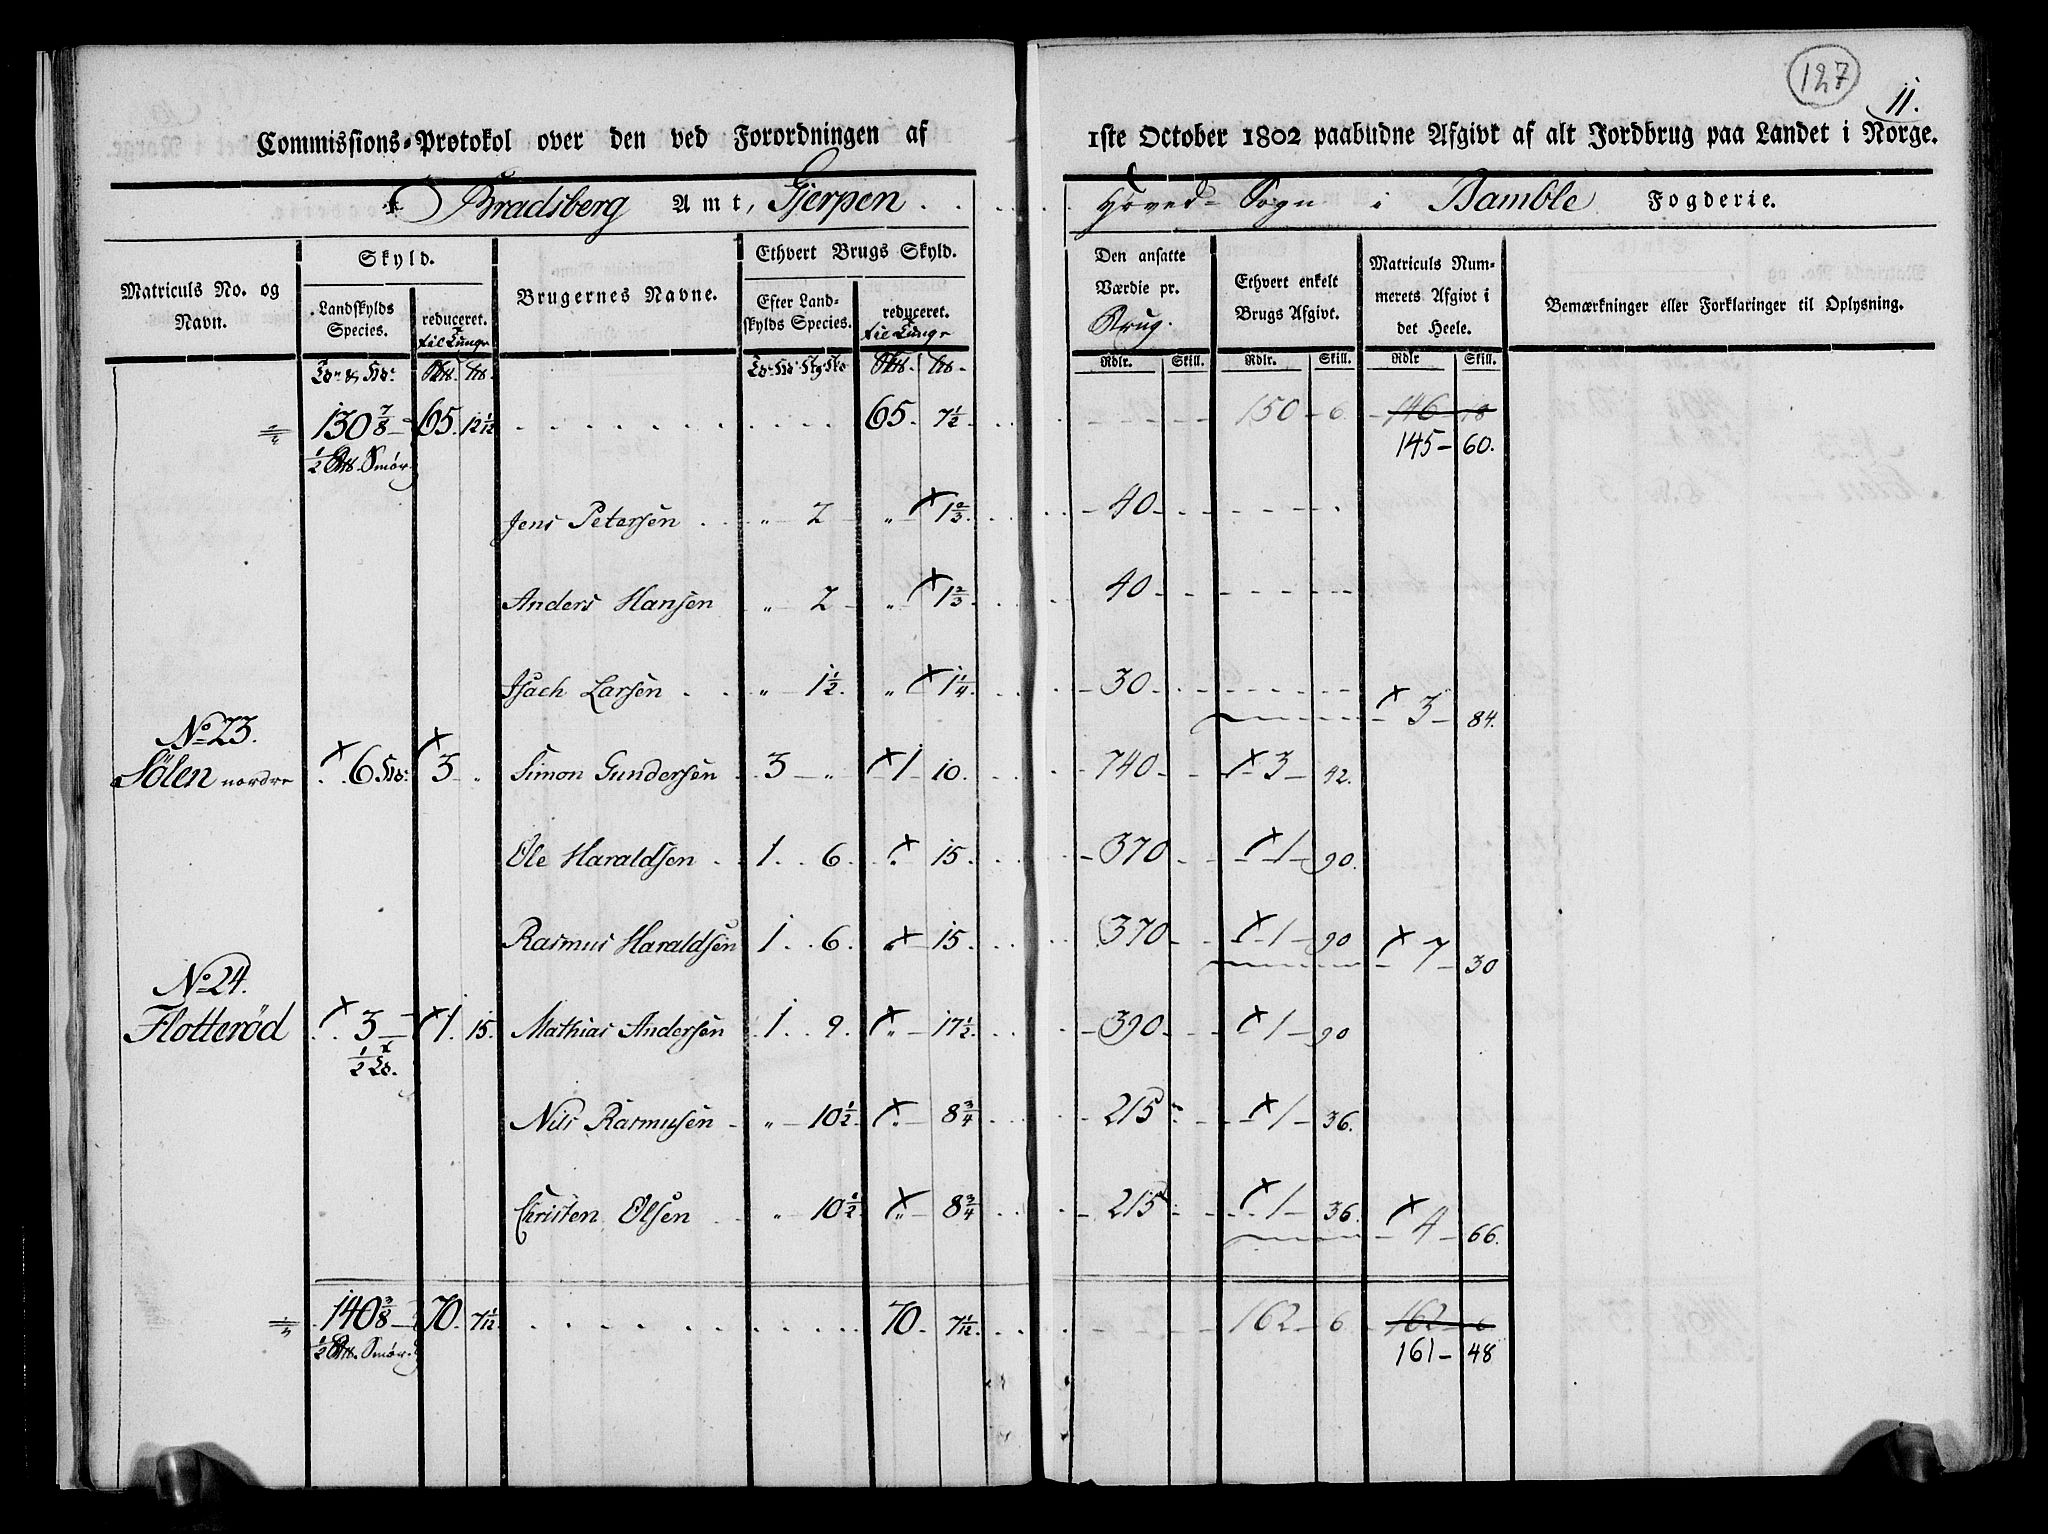 127
11.
Commissions-Protokol over den ved Forordningen af 1ste October 1802 paabudne Afgivt af alt Jordbrug paa Landet i Norge.
Bradsberg Amt, Gjerpen Hoved-Sogn i Bamble Fogderie.
Matriculs No. og Navn. Skyld. Landskylds Species. reduceret. til Tunge Brugernes Navne. Ethvert Brugs Skyld. Efter Landskylds Species. reduceret. til Tunge Den ansatte Værdie pr. Brug. Ethvert enkelt Brugs Afgivt. Matriculs Nummerets Afgivt i det Heele. Bemærkninger eller Forklaringer til Oplysning.
Rdlr. Skill. Rdlr. Skill. Rdlr Skill.
130 7/8 65. 12 1/2 65. 7 1/2 150 - 6. 146 - 18
1/2 Smør. 145 - 60.
Jens Petersen " 2 " 1 2/3. 40
Anders Hansen " 2 " 1 2/3. 40
Isach Larsen " 1 1/2. " 1 1/4. 30
3 - 84.
No 23.
Sölen nordre 6 3 " Simon Gundersen 3 - " 1 10. 740 3 - 42.
Ole Haraldsen 1. 6. " 15. 370 1 - 90.
Rasmus Haraldsen 1. 6. " 15. 370 1 - 90 7 - 30
No 24.
Flotteröd 3 1. 15. Mathias Andersen 1. 9. " 17 1/2. 390 1 - 90
1/2
Nils Rasmusen " 10 1/2. " 8 3/4 215 1 - 36.
Christen Olsen " 10 1/2 " 8 3/4 215 1 - 36. 4 - 66.
140 3/8 70. 7 1/12. 70. 7 1/12. 162 - 6. 162 - 6
1/2 Smør. 161 - 48